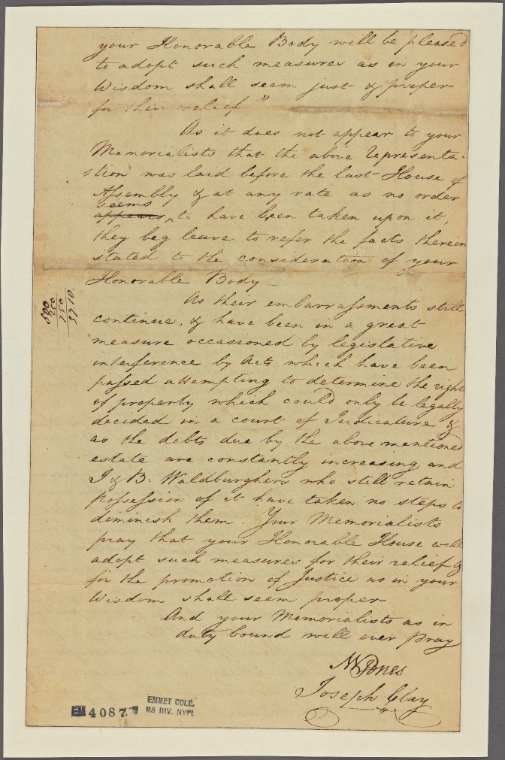 your Honorable Body will be pleased
to adopt such measures as in your
Wisdom shall seem just & proper
for their relief"
As it does not appear to your
Memorialists that the above representa-
-tion was laid before the last House of
Assembly & at any rate as no order
seems
appears to have been taken upon it,
they beg leave to refer the facts therein
stated to the consideration of your
Honorable Body—
As their embarrassments still
continue, & have been in a great
measure occasioned by legislative
interference by Acts which have been
passed attempting to determine the right
of property which could only be legally
decided in a court of Judicature &
as the debts due by the above mentioned
estate are constantly increasing and
J & B. Waldburghers who still retain
possession of it have taken no steps to
diminish them Your Memorialists
pray that your Honorable House will
adopt such measures for their relief &
for the promotion of Justice as in your
Wisdom shall seem proper
And your Memorialists as in
duty bound will ever pray
N W Jones
Joseph Clay
500
250
750
EM 4087
EMMET COLL.
MS DIV. NYPL